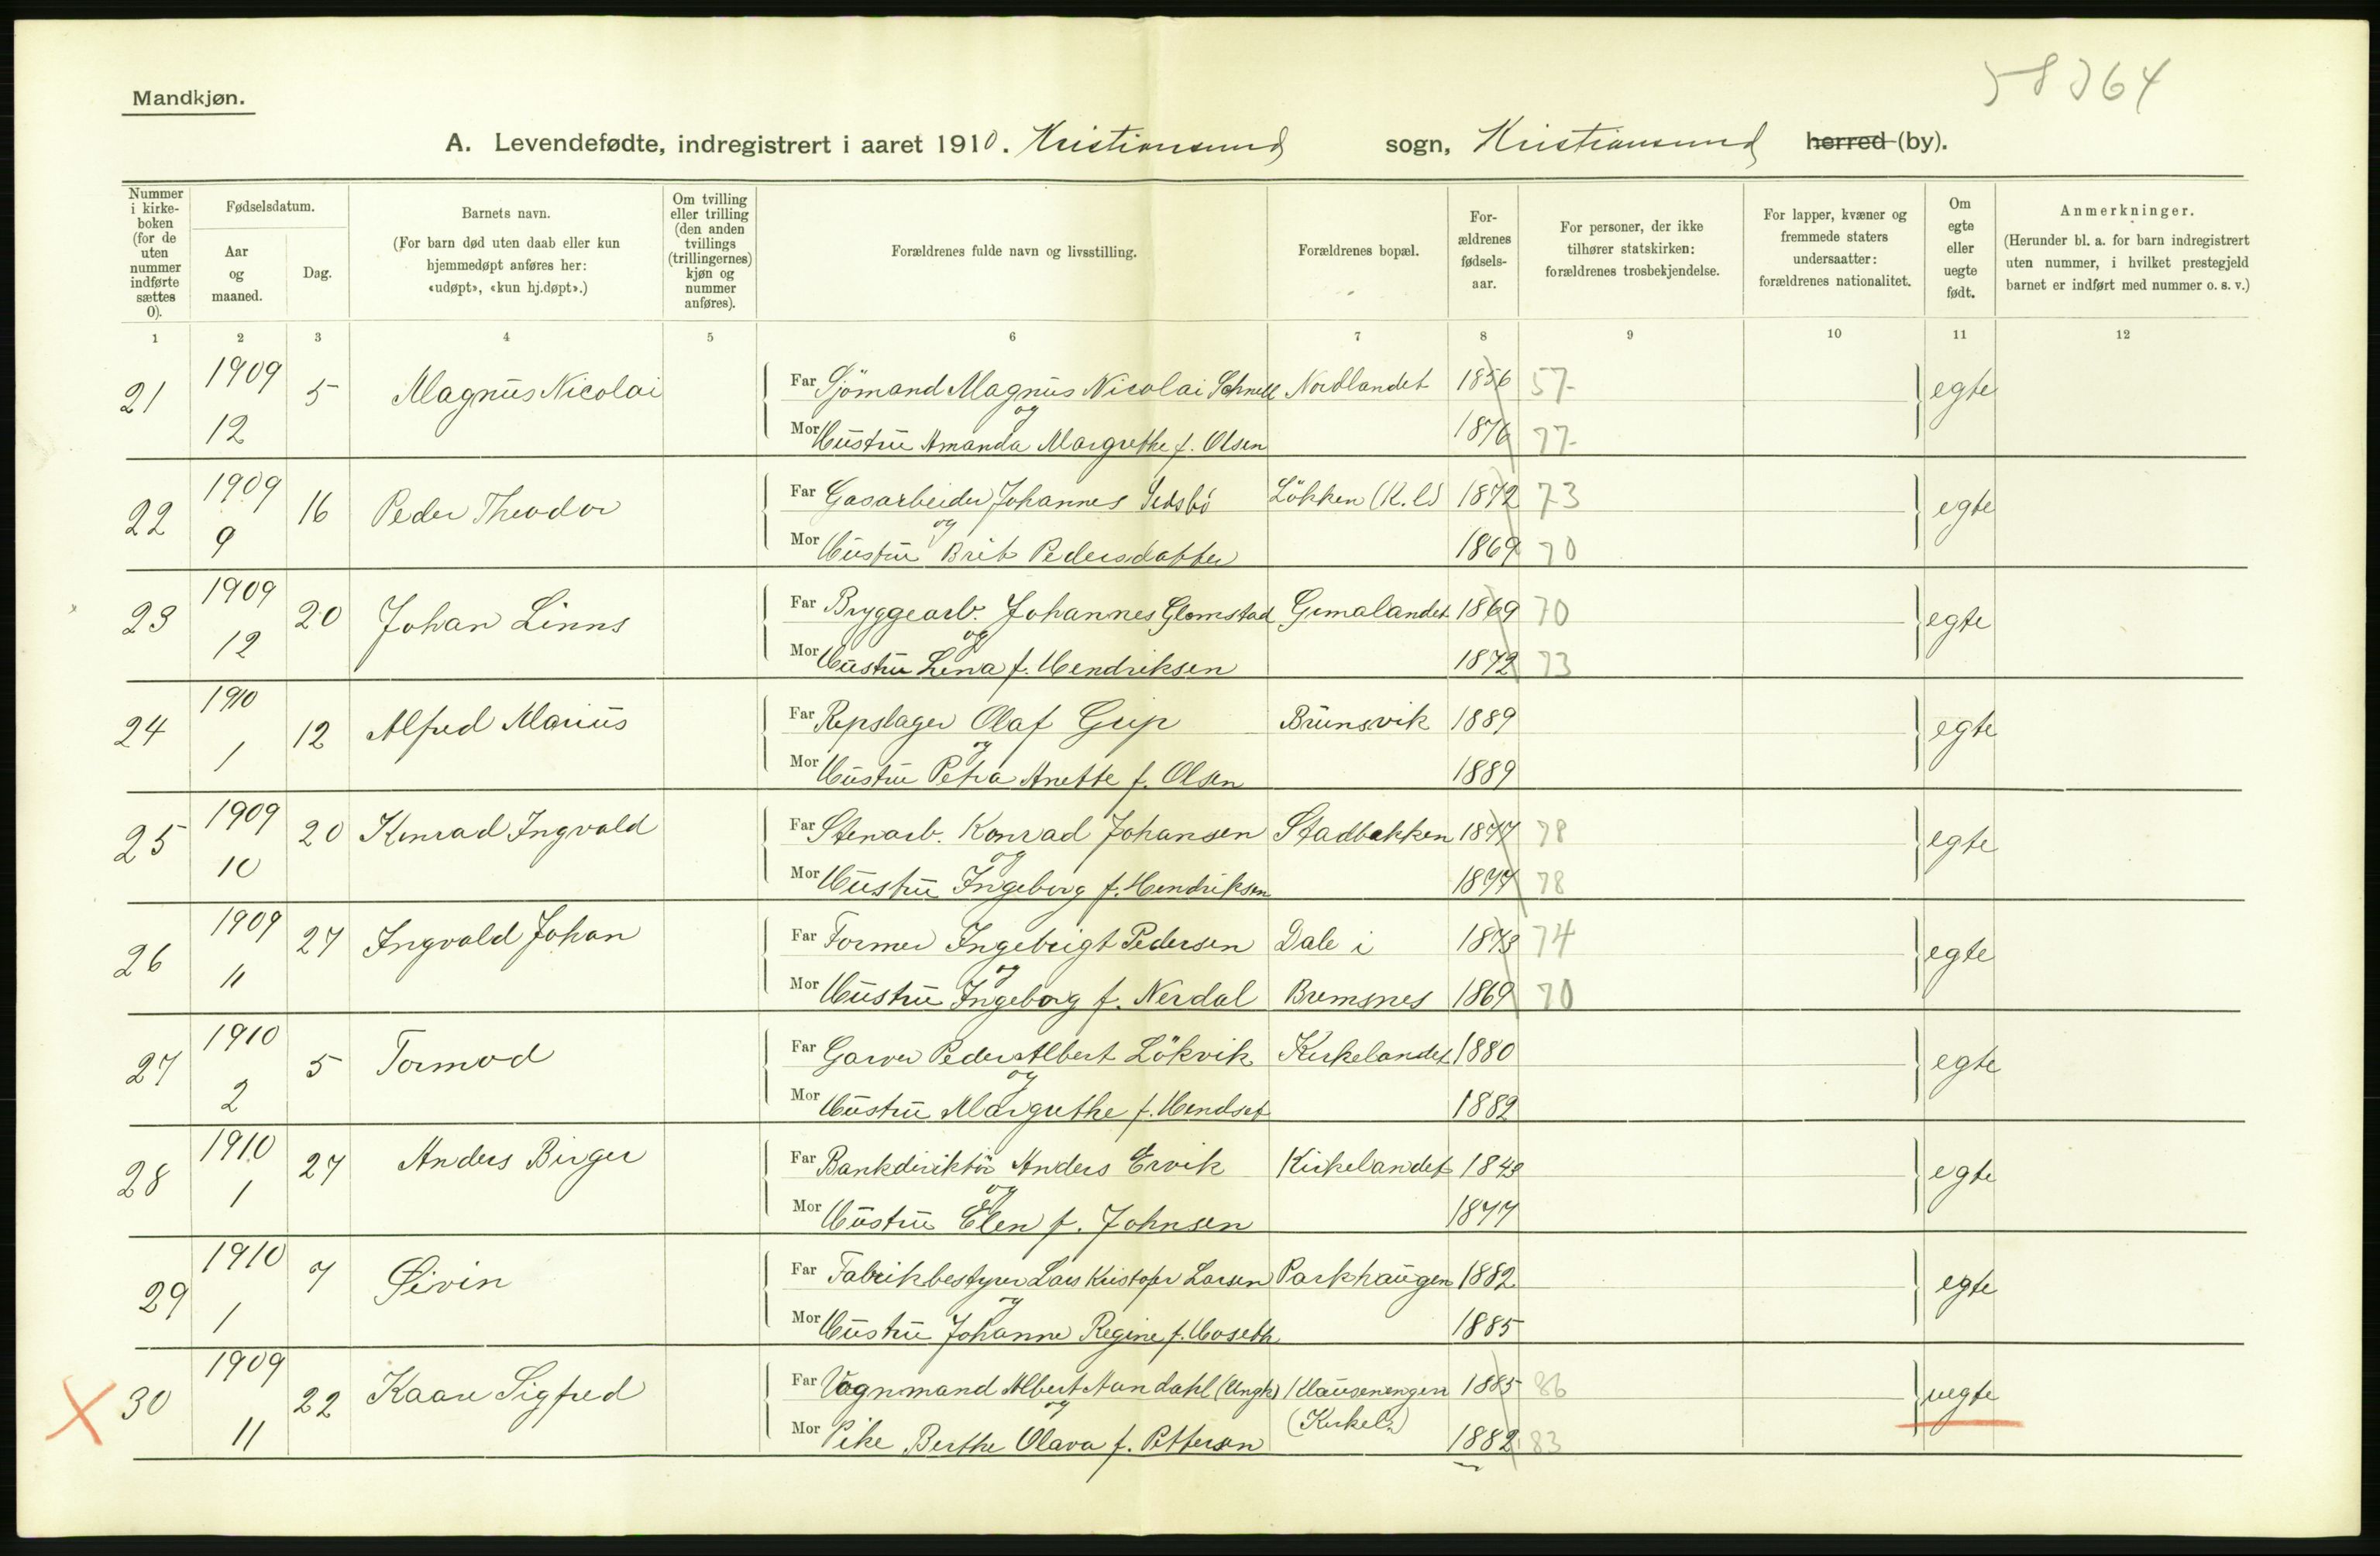 58364
Mandkjøn.
A. Levendefødte, indregistrert i aaret 1910. Kristiansund sogn, Kristiansund herred (by).
Nummer i kirke-boken (for de uten nummer indførte sættes 0).
Fødselsdatum.
Aar og maaned.
Dag.
Barnets navn.
(For barn død uten daab eller kun hjemmedøpt anføres her: «udøpt», «kun hj.døpt».)
Om tvilling eller trilling (den anden tvillings (trillingernes) kjøn og nummer anføres).
Forældrenes fulde navn og livsstilling.
Forældrenes bopæl.
For-ældrenes fødsels-aar.
For personer, der ikke tilhører statskirken: forældrenes trosbekjendelse.
For lapper, kvæner og fremmede staters undersaatter: forældrenes nationalitet.
Om egte eller uegte født.
Anmerkninger.
(Herunder bl. a. for barn indregistrert uten nummer, i hvilket prestegjeld barnet er indført med nummer o. s. v.)
1 2 3 4 5 6 7 8 9 10 11 12
21 1909 12 5 Magnus Nicolai Far Sjömand Magnus Nicolai Schnell Nordlandet 1856 57 egte
og
Mor Hustru Amanda Margrethe f. Olsen 1876 77
22 1909 9 16 Peder Theodor Far Gasarbeider Johannes Sedsbö Lökken (K.l) 1872 73 egte
og
Mor Hustru Brit Pedersdatter 1869 70
23 1909 12 20 Johan Linns Far Bryggearb. Johannes Glomstad Gomalandet 1869 70 egte
og
Mor Hustru Lena f. Hendriksen 1872 73
24 1910 1 12 Alfred Marius Far Repslager Olaf Grip Brunsvik 1889 egte
og
Mor Hustru Petra Anette f. Olsen 1889
25 1909 10 20 Konrad Ingvald Far Stenarb. Konrad Johansen Stadbakken 1877 78 egte
og
Mor Hustru Ingeborg f. Hendriksen 1877 78
26 1909 11 27 Ingvald Johan Far Former Ingebrigt Pedersen Dale i 1873 74 egte
og
Mor Hustru Ingeborg f. Nerdal Bremsnes 1869 70
27 1910 2 5 Tormod Far Garver Peder Albert Lökvik Kirkelandet 1880 egte
og
Mor Hustru Margrethe f. Hendset 1882
28 1910 1 27 Anders Birger Far Bankdirektör Anders Ervik Kirkelandet 1843 egte
og
Mor Hustru Elen f. Johnsen 1877
29 1910 1 7 Øivin Far Fabrikbestyrer Lars Kristofer Larsen Parkhaugen 1882 egte
og
Mor Hustru Johanne Regine f. Hoseth 1885
30 1909 11 22 Kaare Sigfred Far Vognmand Albert Nundahl (Ungk) Clausenengen 1885 86 uegte
og (Kirkel.)
Mor Pike Berthe Olava f. Pettersen 1882 83